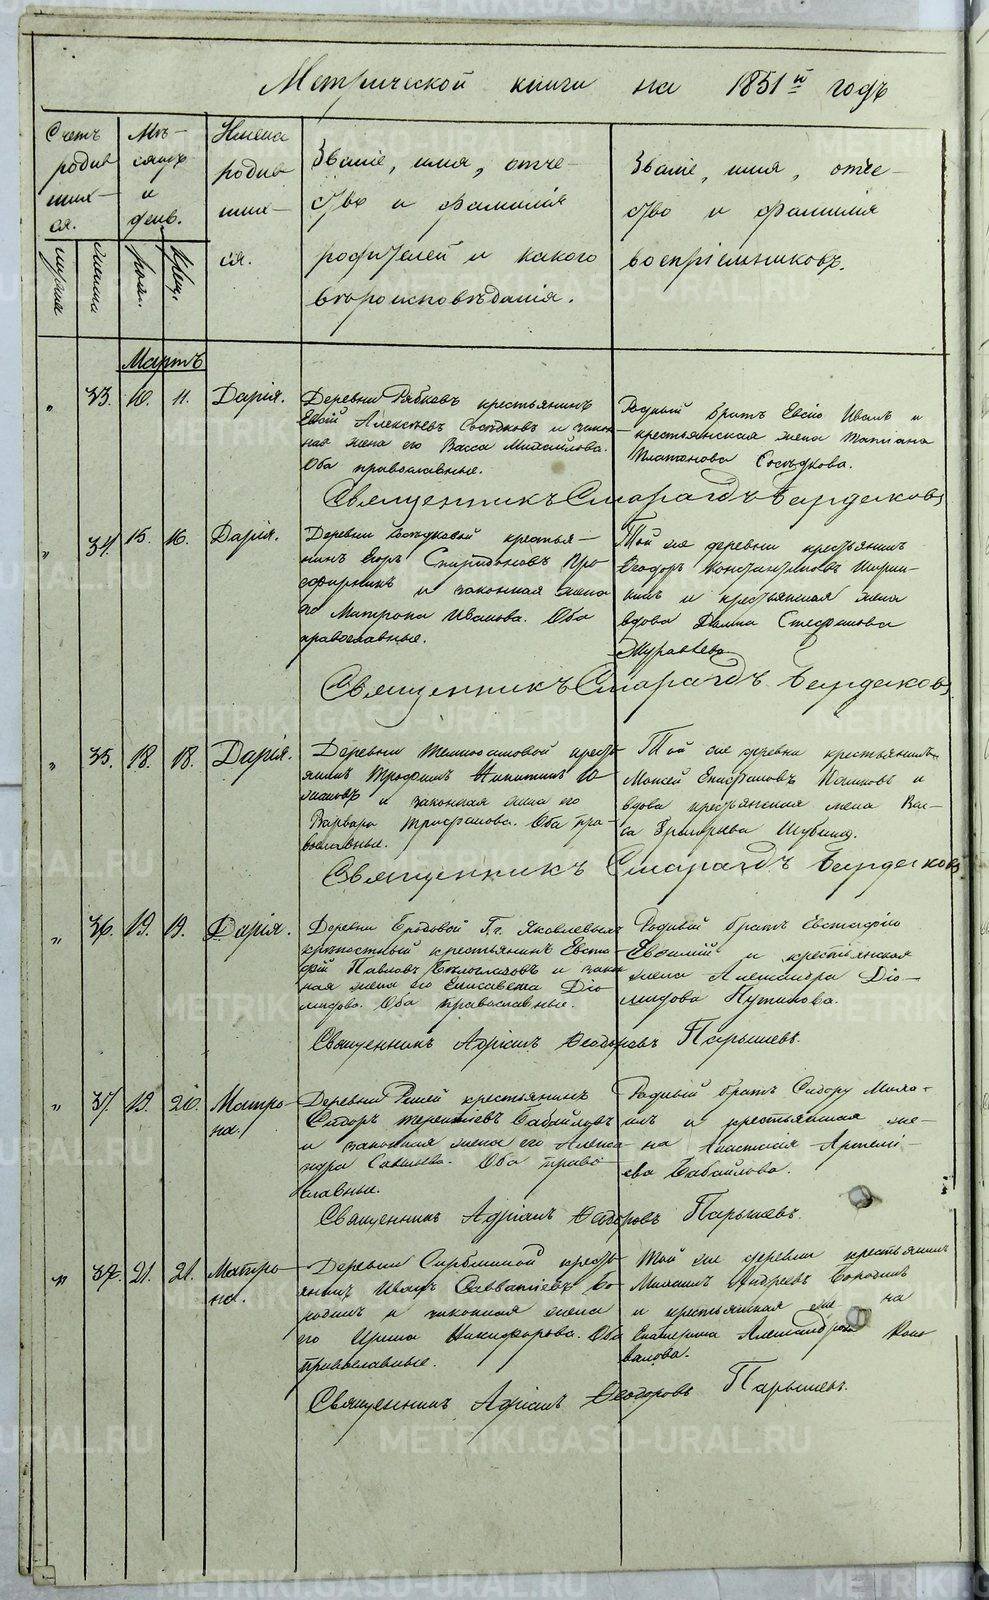 Метрической книги на 1851й годъ
Счетъ родив шихся.
Мѣсяцъ и день.
Имена родившихся.
Званіе, имя, отчество и фамилія родителей и какого вѣроисповѣданія.
Званіе, имя, отчество и фамилія воспріемниковъ.
мужска
женска
рожд.
крещ.
Мартъ
„ 33. 10. 11. Дарія.
Деревни Рябковъ крестьянинъ
Евсій Алексѣевъ Сосѣдковъ и закон
ная жена его Васса Михайлова.
Оба православные.
Родный братъ Евсію Иванъ и
крестьянская жена Татіана
Платонова Сосѣдкова.
Священникъ Смарагдъ Бирдюковъ
„ 34. 15. 16. Дарія.
Деревни Сосѣдковой крестья-
нинъ Егоръ Спиридоновъ Про
сфирникъ и законная жена
его Матрона Иванова. Оба
православные.
Той же деревни крестьянинъ
Ѳеодоръ Константиновъ
и крестьянская жена
вдова Стефанова
Журавлева
Священникъ Смарагдъ Бирдюковъ
„ 35. 18. 18. Дарія.
Деревни крестьянинъ Трофимъ Никитинъ
и законная жена его
Варвара Трофимова. Оба пра-
вославные.
Той же деревни крестьянинъ
Моисей Епифановъ и
вдова крестьянская жена Вас-
са Григорьева Шубина.
Священникъ Смарагдъ Бирдюковъ
„ 36. 19. 19. Дарія.
Деревни Бродовой Г.г. Яковлевыхъ
крѣпостный крестьянинъ Евста
фій Павловъ Бѣлоглазовъ и закон
ная жена его Елисавета Діо
мидова. Оба православные.
Родный братъ Евстафію
Евѳимій и крестьянская
жена Александра Діо-
мидова Путилова.
Священникъ Адріанъ Ѳеодоровъ Парышевъ.
„ 37. 19. 20. Матро
на.
Деревни крестьянинъ
Сидоръ Терентіевъ Бабайловъ
и законная жена его Алекса
ндра Савельева. Оба право
славные.
Родный братъ Сидору
и крестьянская же-
на Анастасія Артемі-
ева Бабайлова.
Священникъ Адріанъ Ѳеодоровъ Парышевъ.
„ 21. 21. Матро
на.
Деревни крестьянинъ Иванъ Савватіевъ Бо
родинъ и законная жена
его Ирина Никифорова. Оба
православные.
Той же деревни крестьянинъ
Михаилъ Андреевъ Бородинъ
и крестьянская жена
Екатерина Александрова Коно
валова.
Священникъ Адріанъ Ѳеодоровъ Парышевъ.
METRIKI.GASO-URAL.RU